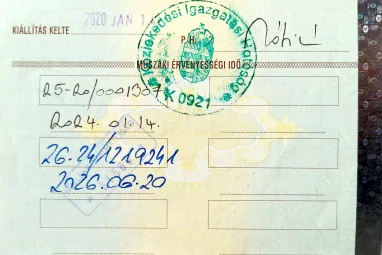 KIÁLLÍTÁS KELTE
2020 JAN 1
P. H.
Közlekedési Igazgatási Hatóság
K 0921
MŰSZAKI ÉRVÉNYESSÉGI IDŐ
25-20/0001307
2024.01.14.
26-24/1219241
2026.06.20